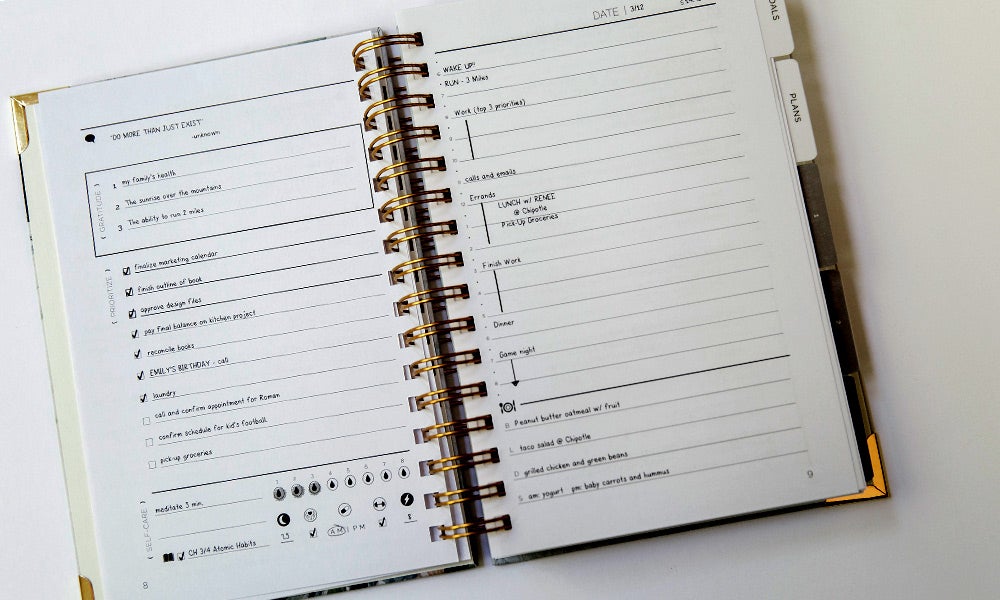 "DO MORE THAN JUST EXIST"
-unknown
GRATITUDE
1 my family's health
2 The sunrise over the mountains
3 The ability to run 2 miles
PRIORITIZE
finalize marketing calendar
finish outline of book
approve design files
pay final balance on kitchen project
reconcile books
EMILY'S BIRTHDAY - call
laundry
call and confirm appointment for Roman
confirm schedule for kid's football
pick-up groceries
SELF-CARE
1 2 3 4 5 6 7 8
meditate 3 min.
AM | PM
7.5
8
CH 3/4 Atomic Habits
8
DATE | 3/12
WAKE UP!
RUN - 3 Miles
Work (top 3 priorities)
calls and emails
Errands
LUNCH w/ RENEE
@ Chipotle
Pick-Up Groceries
Finish Work
Dinner
Game night
B Peanut butter oatmeal w/ fruit
L taco salad @ Chipotle
D grilled chicken and green beans
S am: yogurt pm: baby carrots and hummus
9
PLANS